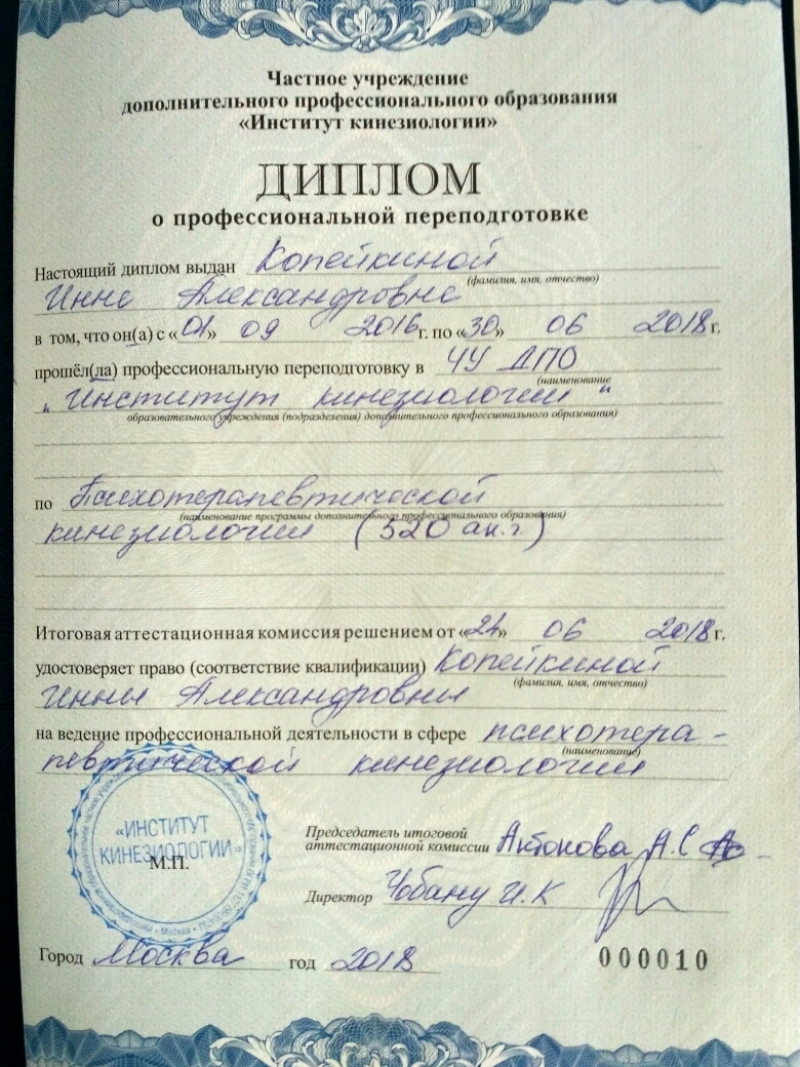 Частное учреждение
дополнительного профессионального образования
«Институт кинезиологии»
ДИПЛОМ
о профессиональной переподготовке
Настоящий диплом выдан Копейкиной
(фамилия, имя, отчество)
Инне Александровне
в том, что он(а) с «01» 09 2016г. по «30» 06 2018г.
прошёл(ла) профессиональную переподготовку в ЧУ ДПО
(наименование
"Институт кинезиологии"
образовательного учреждения (подразделения) дополнительного профессионального образования)
по Психотерапевтической
(наименование программы дополнительного профессионального образования)
кинезиологии (520 ак.г.)
Итоговая аттестационная комиссия решением от «24» 06 2018г.
удостоверяет право (соответствие квалификации) Копейкиной
(фамилия, имя, отчество)
Инны Александровны
на ведение профессиональной деятельности в сфере психотера-
(наименование)
певтической кинезиологии
«ИНСТИТУТ
КИНЕЗИОЛОГИИ»
М.П.
Москва
Председатель итоговой
аттестационной комиссии Антонова А.С
Директор Чобану И.К
Город Москва год 2018
000010